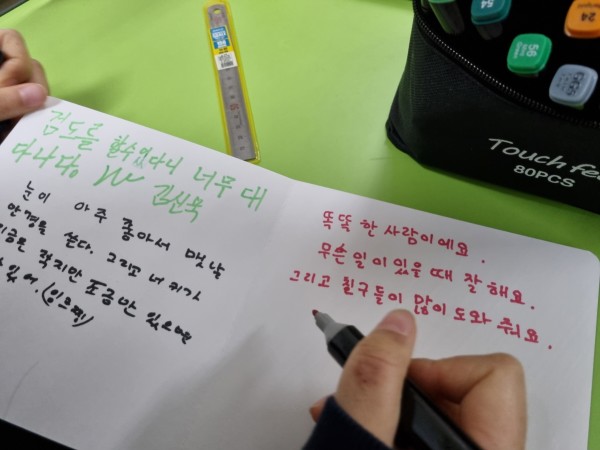 54
24
56
Touch fee
80PCS
검도를 할수있다니 너무 대
다나당
눈이 아주 좋아서 맷날
안경을 쓴다. 그리고 네 키가
지금은 작지만 조금만 있으면
있어.
똑똑 한 사람이에요.
무슨 일이 있을 때 잘 해요.
그리고 친구들이 많이 도와 줘요.